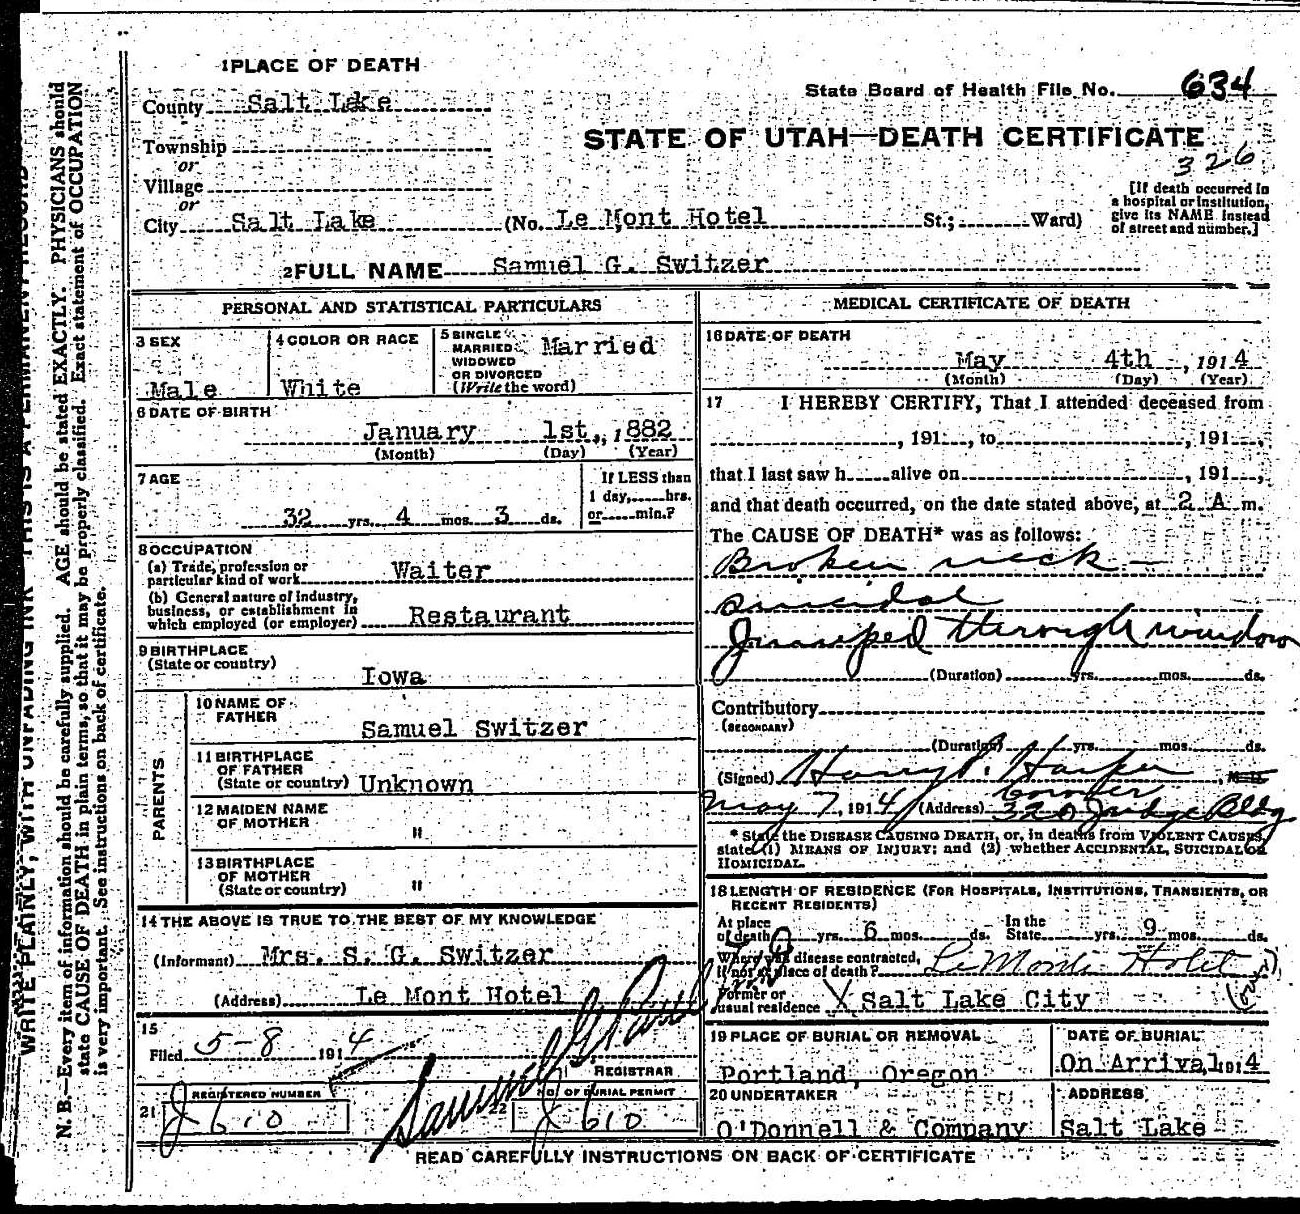 1 PLACE OF DEATH
County Salt Lake
Township
or
Village
or
City Salt Lake (No. Le Mont Hotel St.; Ward)
State Board of Health File No. 634
STATE OF UTAH—DEATH CERTIFICATE
326
[If death occurred in
a hospital or institution,
give its NAME instead
of street and number.]
2 FULL NAME Samuel G. Switzer
PERSONAL AND STATISTICAL PARTICULARS
3 SEX
Male
4 COLOR OR RACE
White
5 SINGLE
MARRIED
WIDOWED
OR DIVORCED
(Write the word)
Married
6 DATE OF BIRTH
January 1st., 1882
(Month) (Day) (Year)
7 AGE
32 yrs. 4 mos. 3 ds.
If LESS than
1 day, hrs.
or min.?
8 OCCUPATION
(a) Trade, profession or
particular kind of work Waiter
(b) General nature of industry,
business, or establishment in
which employed (or employer) Restaurant
9 BIRTHPLACE
(State or country)
Iowa
PARENTS
10 NAME OF
FATHER
Samuel Switzer
11 BIRTHPLACE
OF FATHER
(State or country) Unknown
12 MAIDEN NAME
OF MOTHER "
13 BIRTHPLACE
OF MOTHER
(State or country) "
14 THE ABOVE IS TRUE TO THE BEST OF MY KNOWLEDGE
(Informant) Mrs. S. G. Switzer
(Address) Le Mont Hotel
15
Filed 5-8 1914
REGISTRAR
REGISTERED NUMBER
21 J 610
NO. OF BURIAL PERMIT
22 J 610
MEDICAL CERTIFICATE OF DEATH
16 DATE OF DEATH
May 4th, 1914
(Month) (Day) (Year)
17 I HEREBY CERTIFY, That I attended deceased from
, 191 , to , 191 ,
that I last saw h alive on , 191 ,
and that death occurred, on the date stated above, at 2 A m.
The CAUSE OF DEATH* was as follows:
Broken neck —
suicidal
Jumped through window
(Duration) yrs. mos. ds.
Contributory
(SECONDARY)
(Duration) yrs. mos. ds.
(Signed) Harry P. Harper, M. D.
Coroner
May 7, 1914 (Address) 320 Judge Bldg
* State the DISEASE CAUSING DEATH, or, in deaths from VIOLENT CAUSES,
state (1) MEANS OF INJURY; and (2) whether ACCIDENTAL, SUICIDAL OR
HOMICIDAL.
18 LENGTH OF RESIDENCE (FOR HOSPITALS, INSTITUTIONS, TRANSIENTS, OR
RECENT RESIDENTS)
At place
of death yrs. 6 mos. ds.
In the
State yrs. 9 mos. ds.
Where was disease contracted,
if not at place of death?
Former or
usual residence X Salt Lake City
19 PLACE OF BURIAL OR REMOVAL
Portland, Oregon
DATE OF BURIAL
On Arrival, 1914
20 UNDERTAKER
O'Donnell & Company
ADDRESS
Salt Lake
READ CAREFULLY INSTRUCTIONS ON BACK OF CERTIFICATE
WRITE PLAINLY, WITH UNFADING INK—THIS IS A PERMANENT RECORD
N. B.—Every item of information should be carefully supplied. AGE should be stated EXACTLY. PHYSICIANS should
state CAUSE OF DEATH in plain terms, so that it may be properly classified. Exact statement of OCCUPATION
is very important. See instructions on back of certificate.